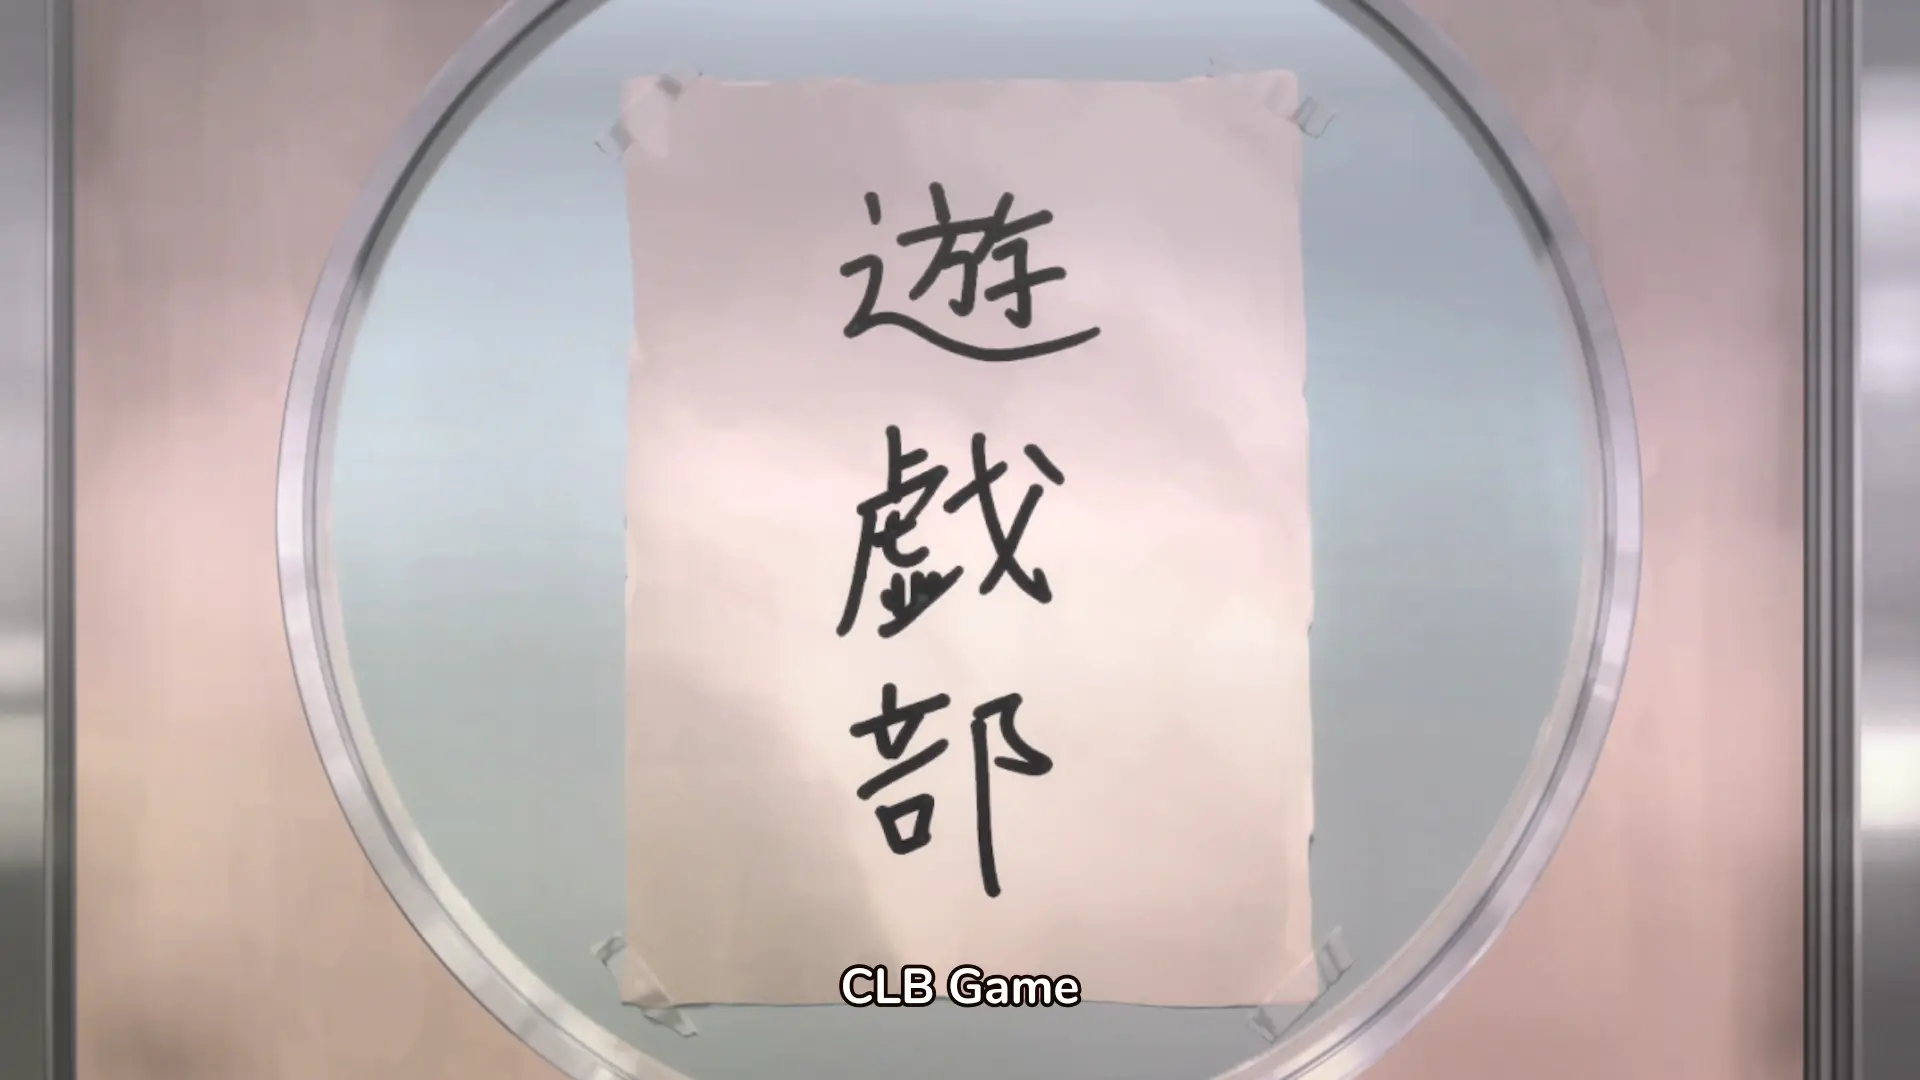 遊戯部
CLB Game